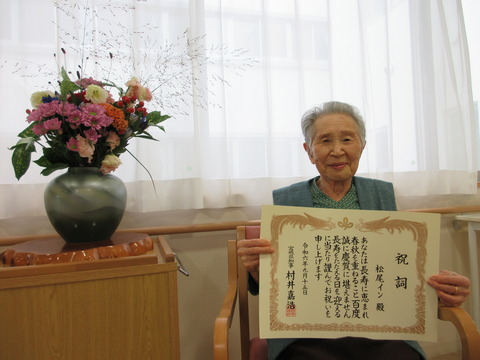 祝詞
松尾イン 殿
あなたは長寿に恵まれ
春秋を重ねること百度
誠に慶賀に堪えません
長寿をたたえる日を迎える
に当たり謹んでお祝いを
申し上げます
令和六年九月十五日
宮城県知事 村井嘉浩